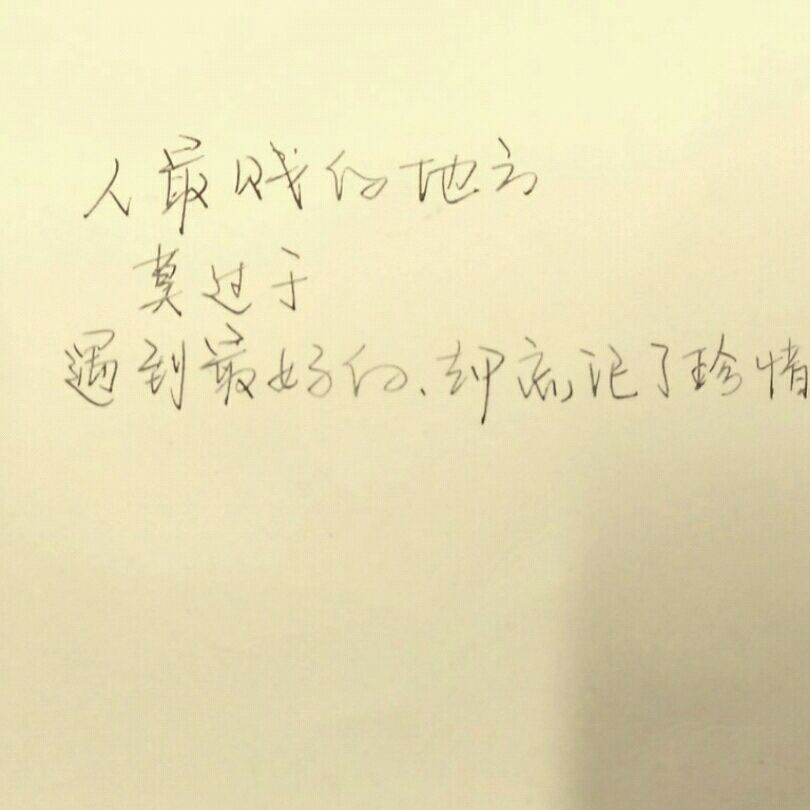 人最贱的地方
莫过于
遇到最好的、却忘记了珍惜